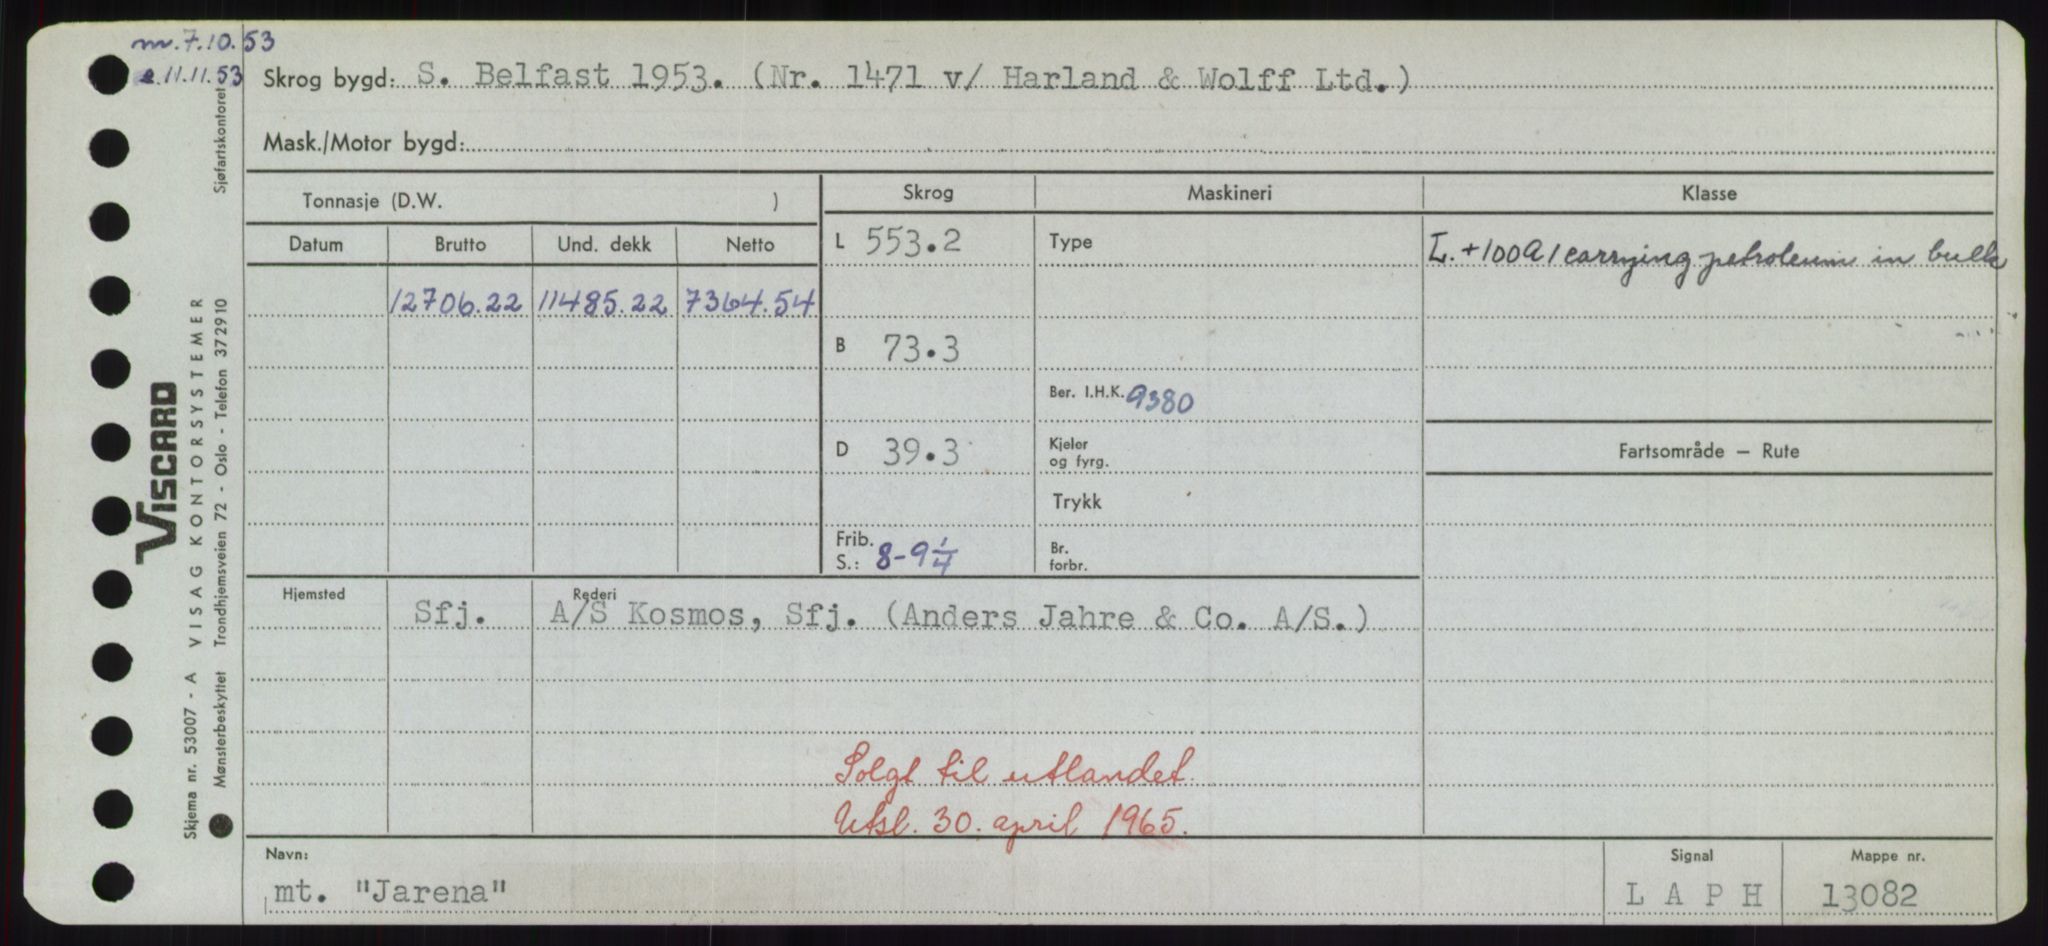 m. 7.10.53
e. 11.11.53
Skrog bygd: S. Belfast 1953. (Nr. 1471 v/ Harland & Wolff Ltd.)
Mask./Motor bygd:
Tonnasje (D.W. )
Skrog
Maskineri
Klasse
Datum
Brutto
Und. dekk
Netto
L 553.2
Type
L. +100A1 carrying petroleum in bulk
12706.22 11485.22 7364.54
B 73.3
Ber. I.H.K. 9380
D 39.3
Kjeler
og fyrg.
Fartsområde – Rute
Trykk
Frib.
S.: 8-9 1/4
Br.
forbr.
Hjemsted
Rederi
Sfj. A/S Kosmos, Sfj. (Anders Jahre & Co. A/S.)
Solgt til utlandet.
Utsl. 30. april 1965.
Navn:
mt. "Jarena"
Signal
L A P H
Mappe nr.
13082
VISCARD
Skjema nr. 53007 - A VISAG KONTORSYSTEMER
Mønsterbeskyttet Trondhjemsveien 72 - Oslo - Telefon 372910
Sjøfartskontoret